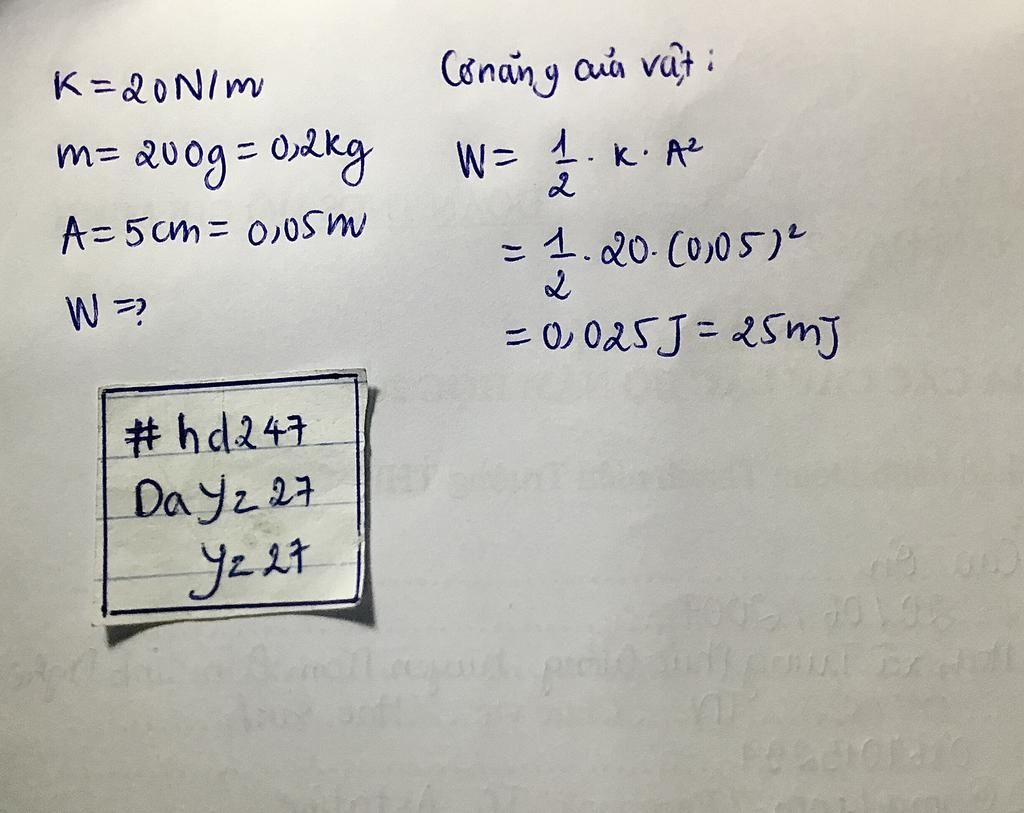 K = 20N/m
m = 200g = 0,2kg
A = 5cm = 0,05m
W = ?
Cơ năng của vật :
W = 1/2 . K . A²
= 1/2 . 20 . (0,05)²
= 0,025J = 25mJ
#hd247
Da Yz 27
Yz 27